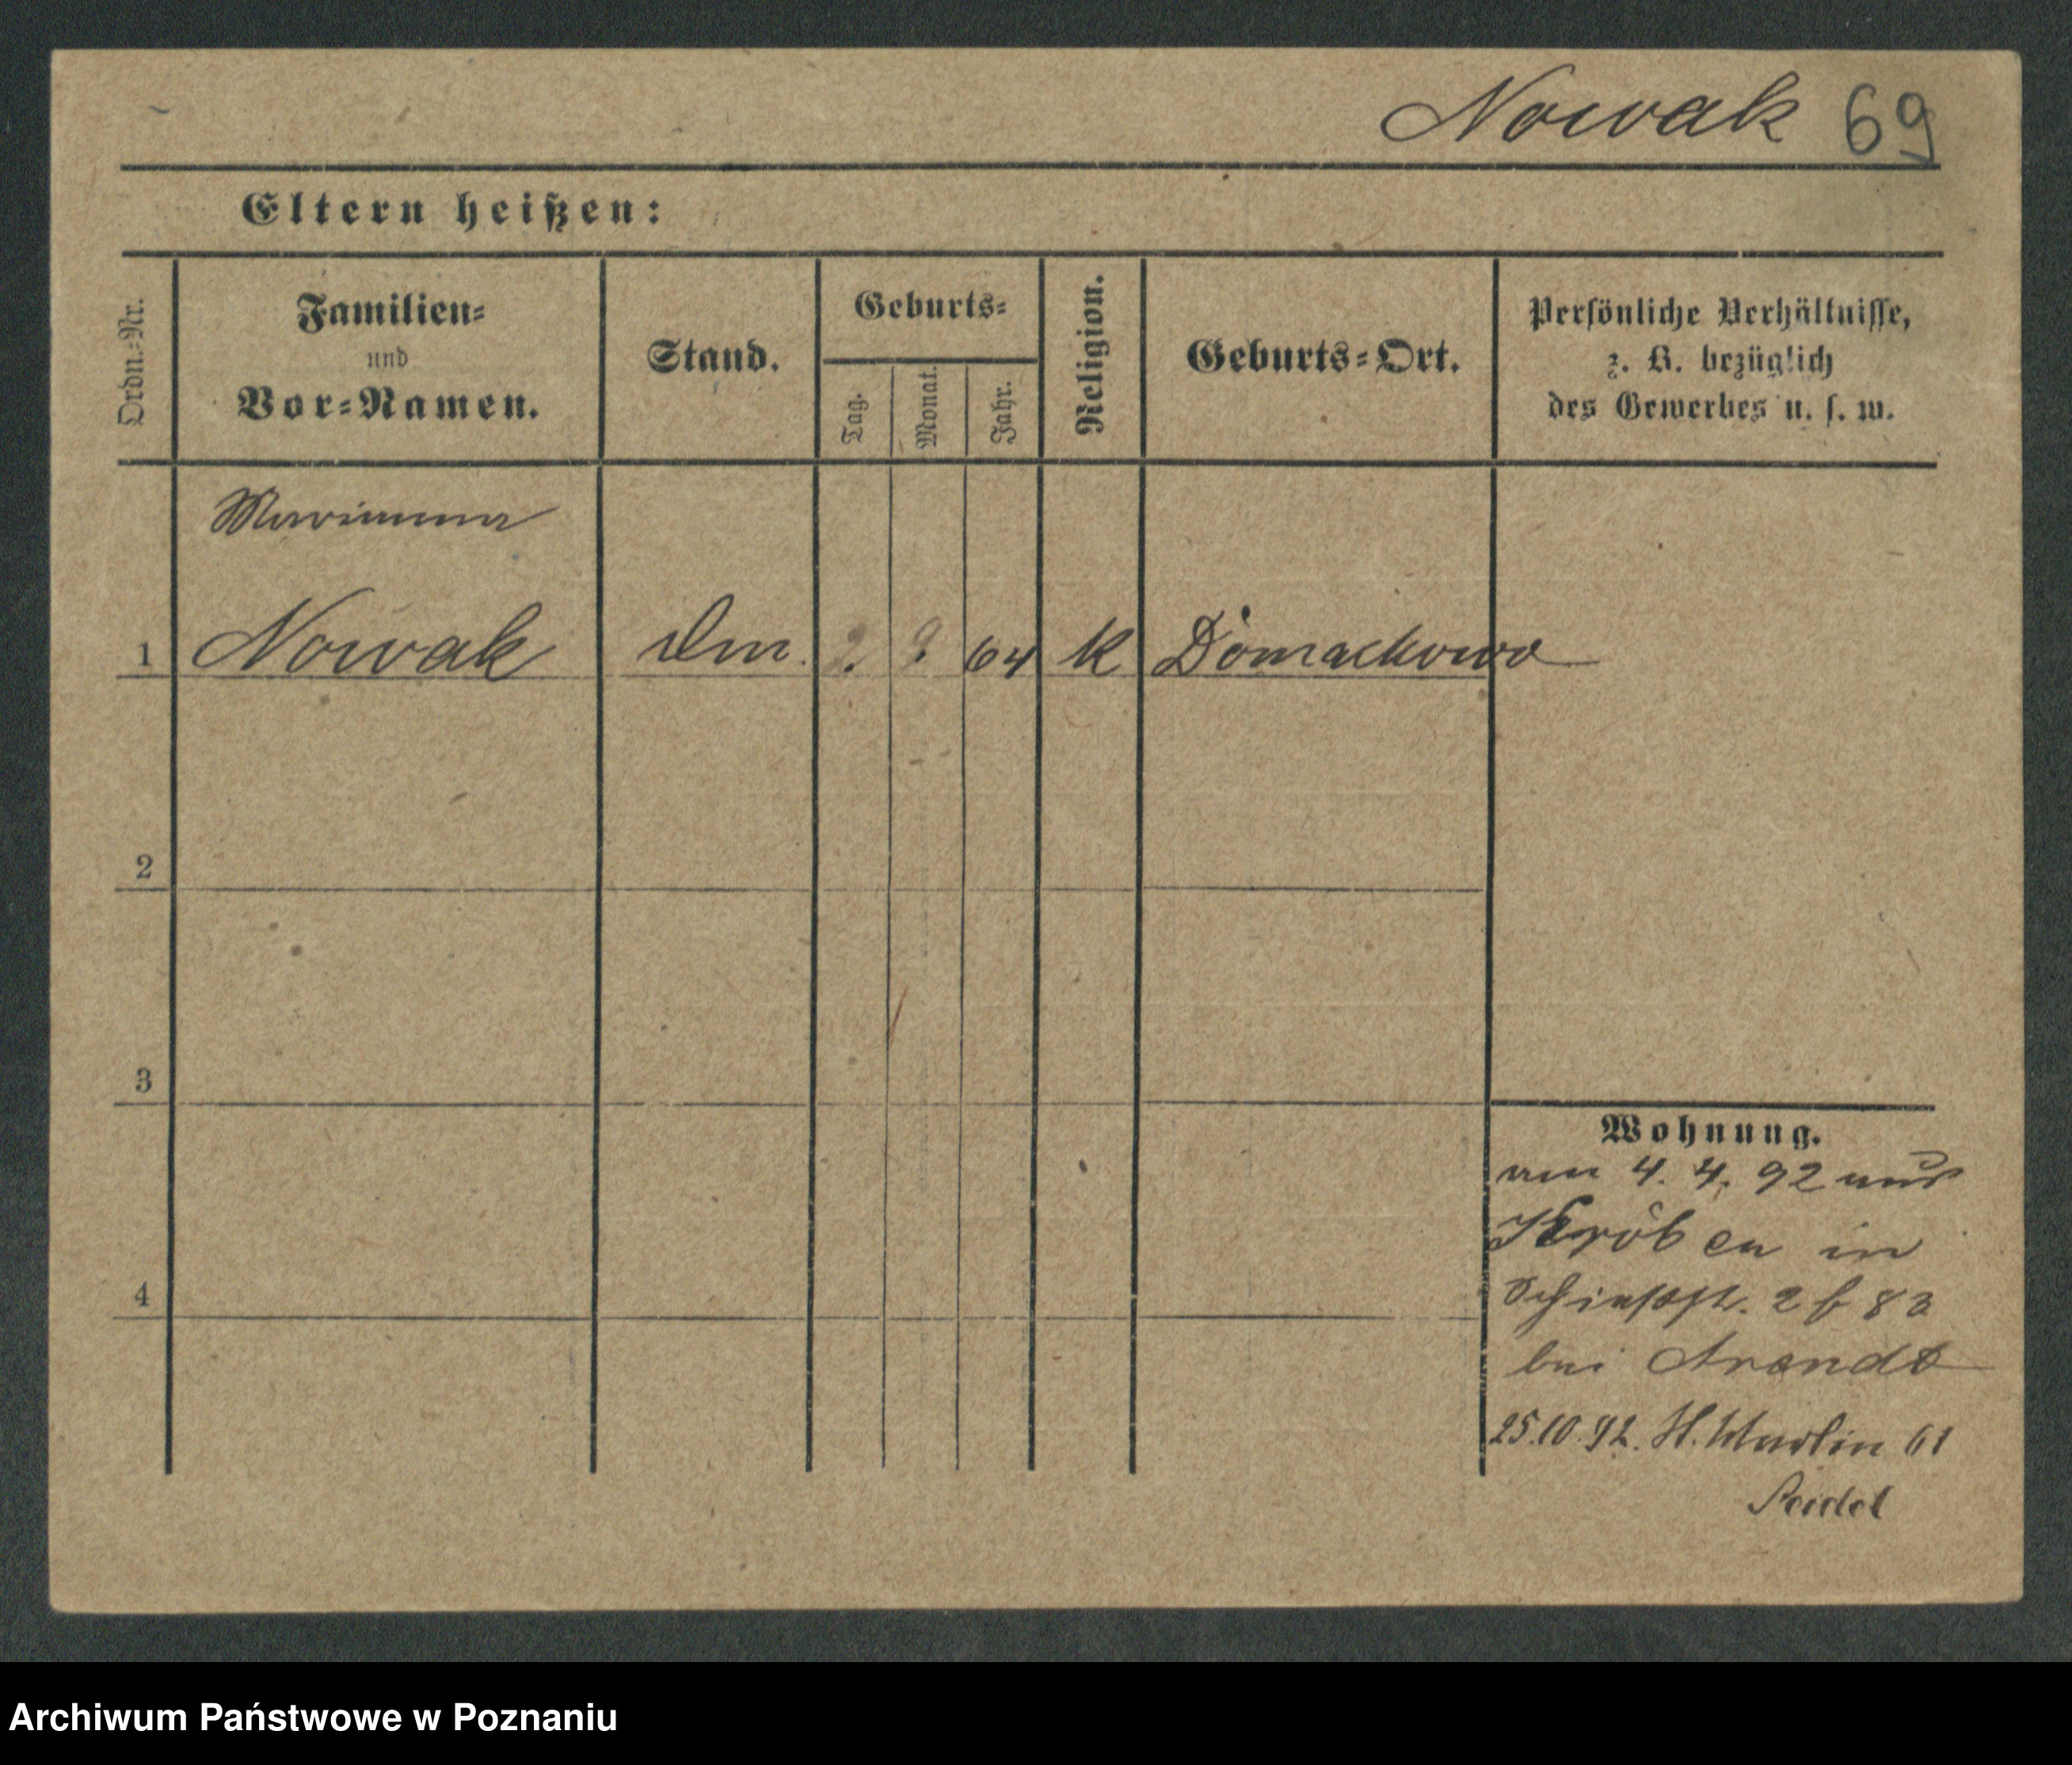 Nowak 69
Eltern heißen:
Ordn.-Nr.
Familien-
und
Vor-Namen.
Stand.
Geburts-
Tag.
Monat.
Jahr.
Religion.
Geburts-Ort.
Persönliche Verhältnisse,
z. B. bezüglich
des Gewerbes u. s. w.
Marianna
1 Nowak Dm. ? ? 64 K Domachowo
2
3
4
Wohnung.
am 4. 4. 92 aus
Kröben in
bei Arendt
25.10.92. St. Martin 61
Seidel
Archiwum Państwowe w Poznaniu